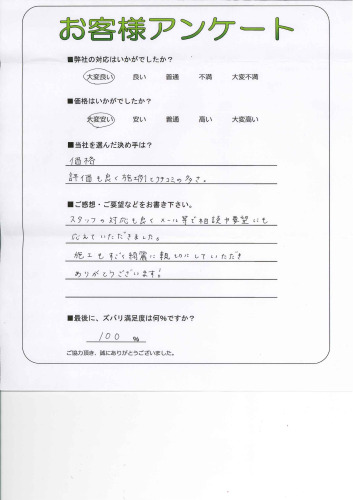 お客様アンケート
■弊社の対応はいかがでしたか?
大変良い 良い 普通 不満 大変不満
■価格はいかがでしたか?
大変安い 安い 普通 高い 大変高い
■当社を選んだ決め手は?
価格
評価も良く施工例と口コミの多さ。
■ご感想・ご要望などをお書き下さい。
スタッフの対応も良くメール等で相談や要望にも
応えていただきました。
施工もすごく綺麗に親切にしていただき
ありがとうございます!
■最後に、ズバリ満足度は何%ですか?
100 %
ご協力頂き、誠にありがとうございました。